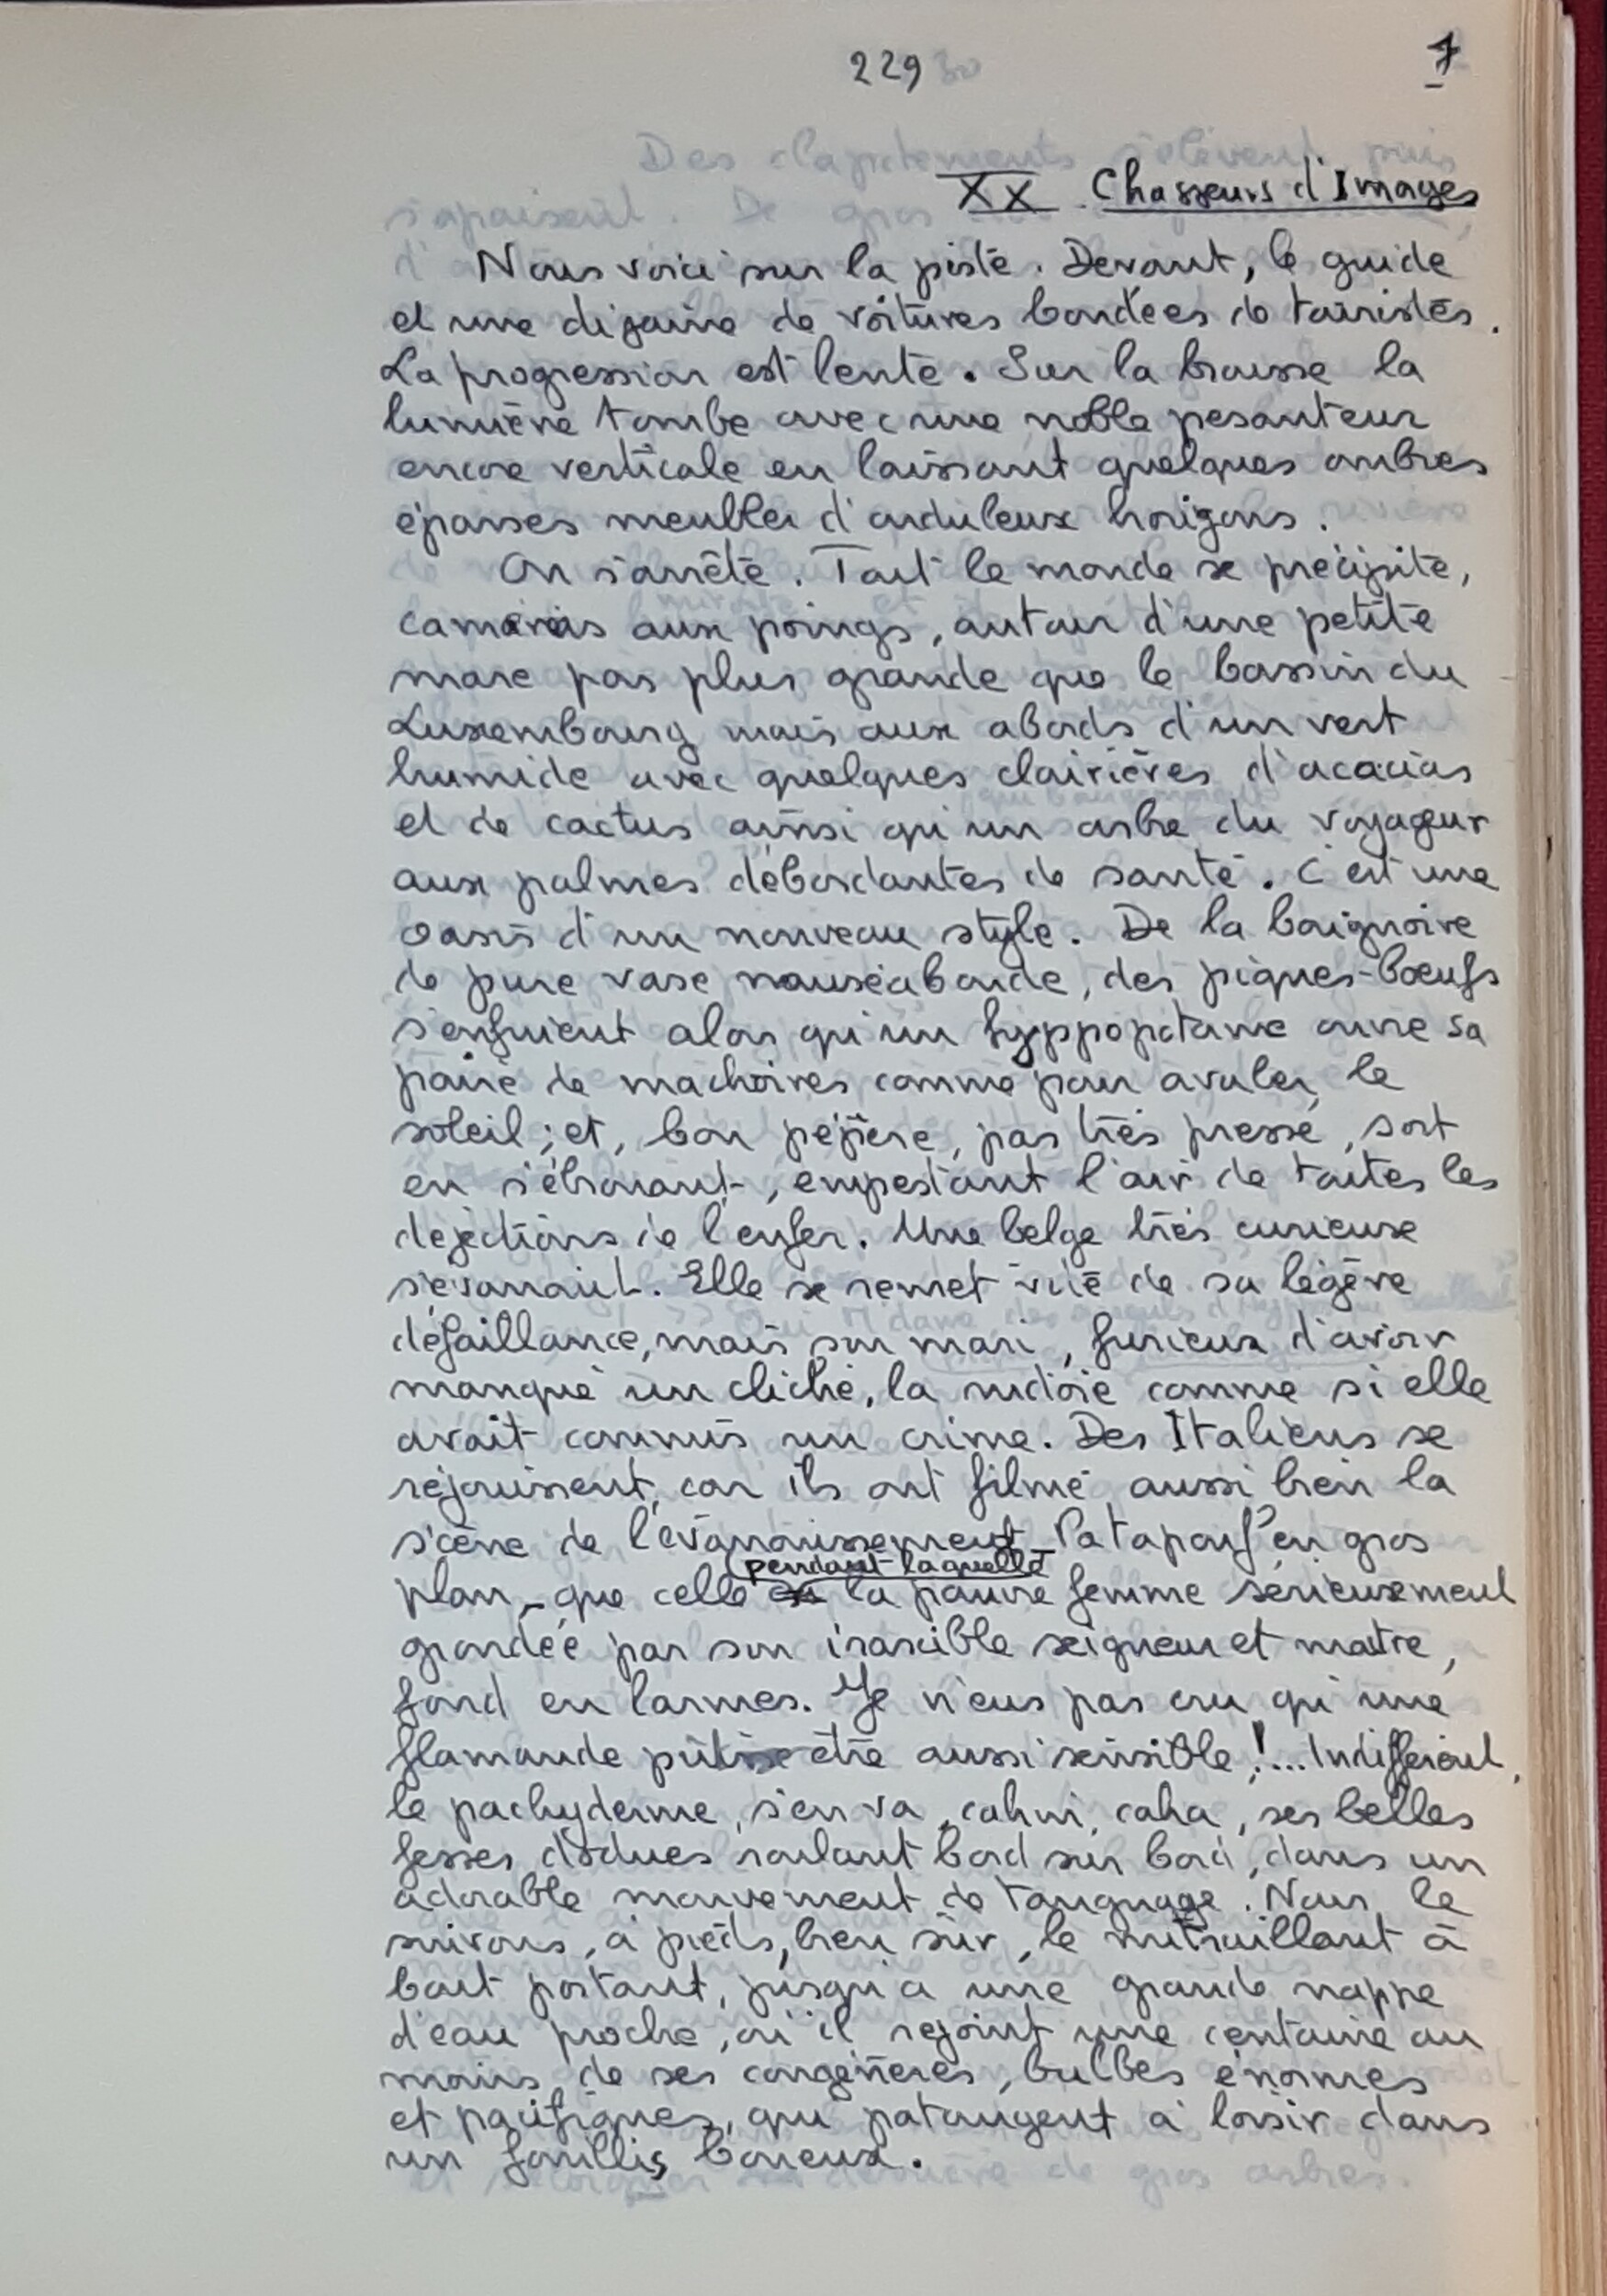 229
1
XX Chasseurs d'Images
Nous voici sur la piste. Devant, le guide
et une dizaine de voitures bondées de touristes.
La progression est lente. Sur la brousse la
lumière tombe avec une noble pesanteur
encore verticale en laissant quelques ombres
éparses meubler d'onduleux horizons.
On s'arrête. Tout le monde se précipite,
caméras aux poings, autour d'une petite
mare pas plus grande que le bassin du
Luxembourg mais aux abords d'un vert
humide avec quelques clairières d'acacias
et de cactus ainsi qu'un arbre du voyageur
aux palmes débordantes de santé. C'est une
oasis d'un nouveau style. De la baignoire
de pure vase nauséabonde, des piques-bœufs
s'enfuient alors qu'un hyppopotame ouvre sa
paire de machoires comme pour avaler le
soleil; et, bon pépère, pas très pressé, sort
en s'ébrouant, empestant l'air de toutes les
déjections de l'enfer. Une belge très curieuse
s'évanouit. Elle se remet vite de sa légère
défaillance, mais son mari, furieux d'avoir
manqué un cliché, la rudoie comme si elle
avait commis un crime. Des Italiens se
réjouissent, car ils ont filmé aussi bien la
scène de l'évanouissement _ Patapouf en gros
pendant laquelle
plan _ que celle la pauvre femme sérieusement
grondée par son irascible seigneur et maitre,
fond en larmes. Je n'eus pas cru qu'une
flamande pût être aussi sensible !... Indifférent,
le pachyderme, s'en va, cahin, caha, ses belles
fesses dodues roulant bord sur bord, dans un
adorable mouvement de tanguage. Nous le
suivons, à pieds, bien sûr, le mitraillant à
bout portant, jusqu'à une grande nappe
d'eau proche, où il rejoint une centaine au
moins de ses congénères, bulbes énormes
et pacifiques, qui pataugent à loisir dans
un fouillis boueux.